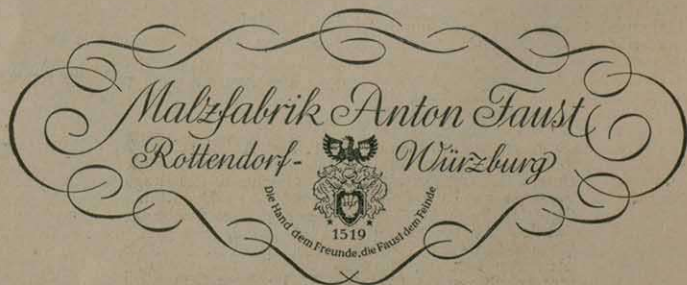 Malzfabrik Anton Faust
Rottendorf- Würzburg
1519
Die Hand dem Freunde, die Faust dem Feinde